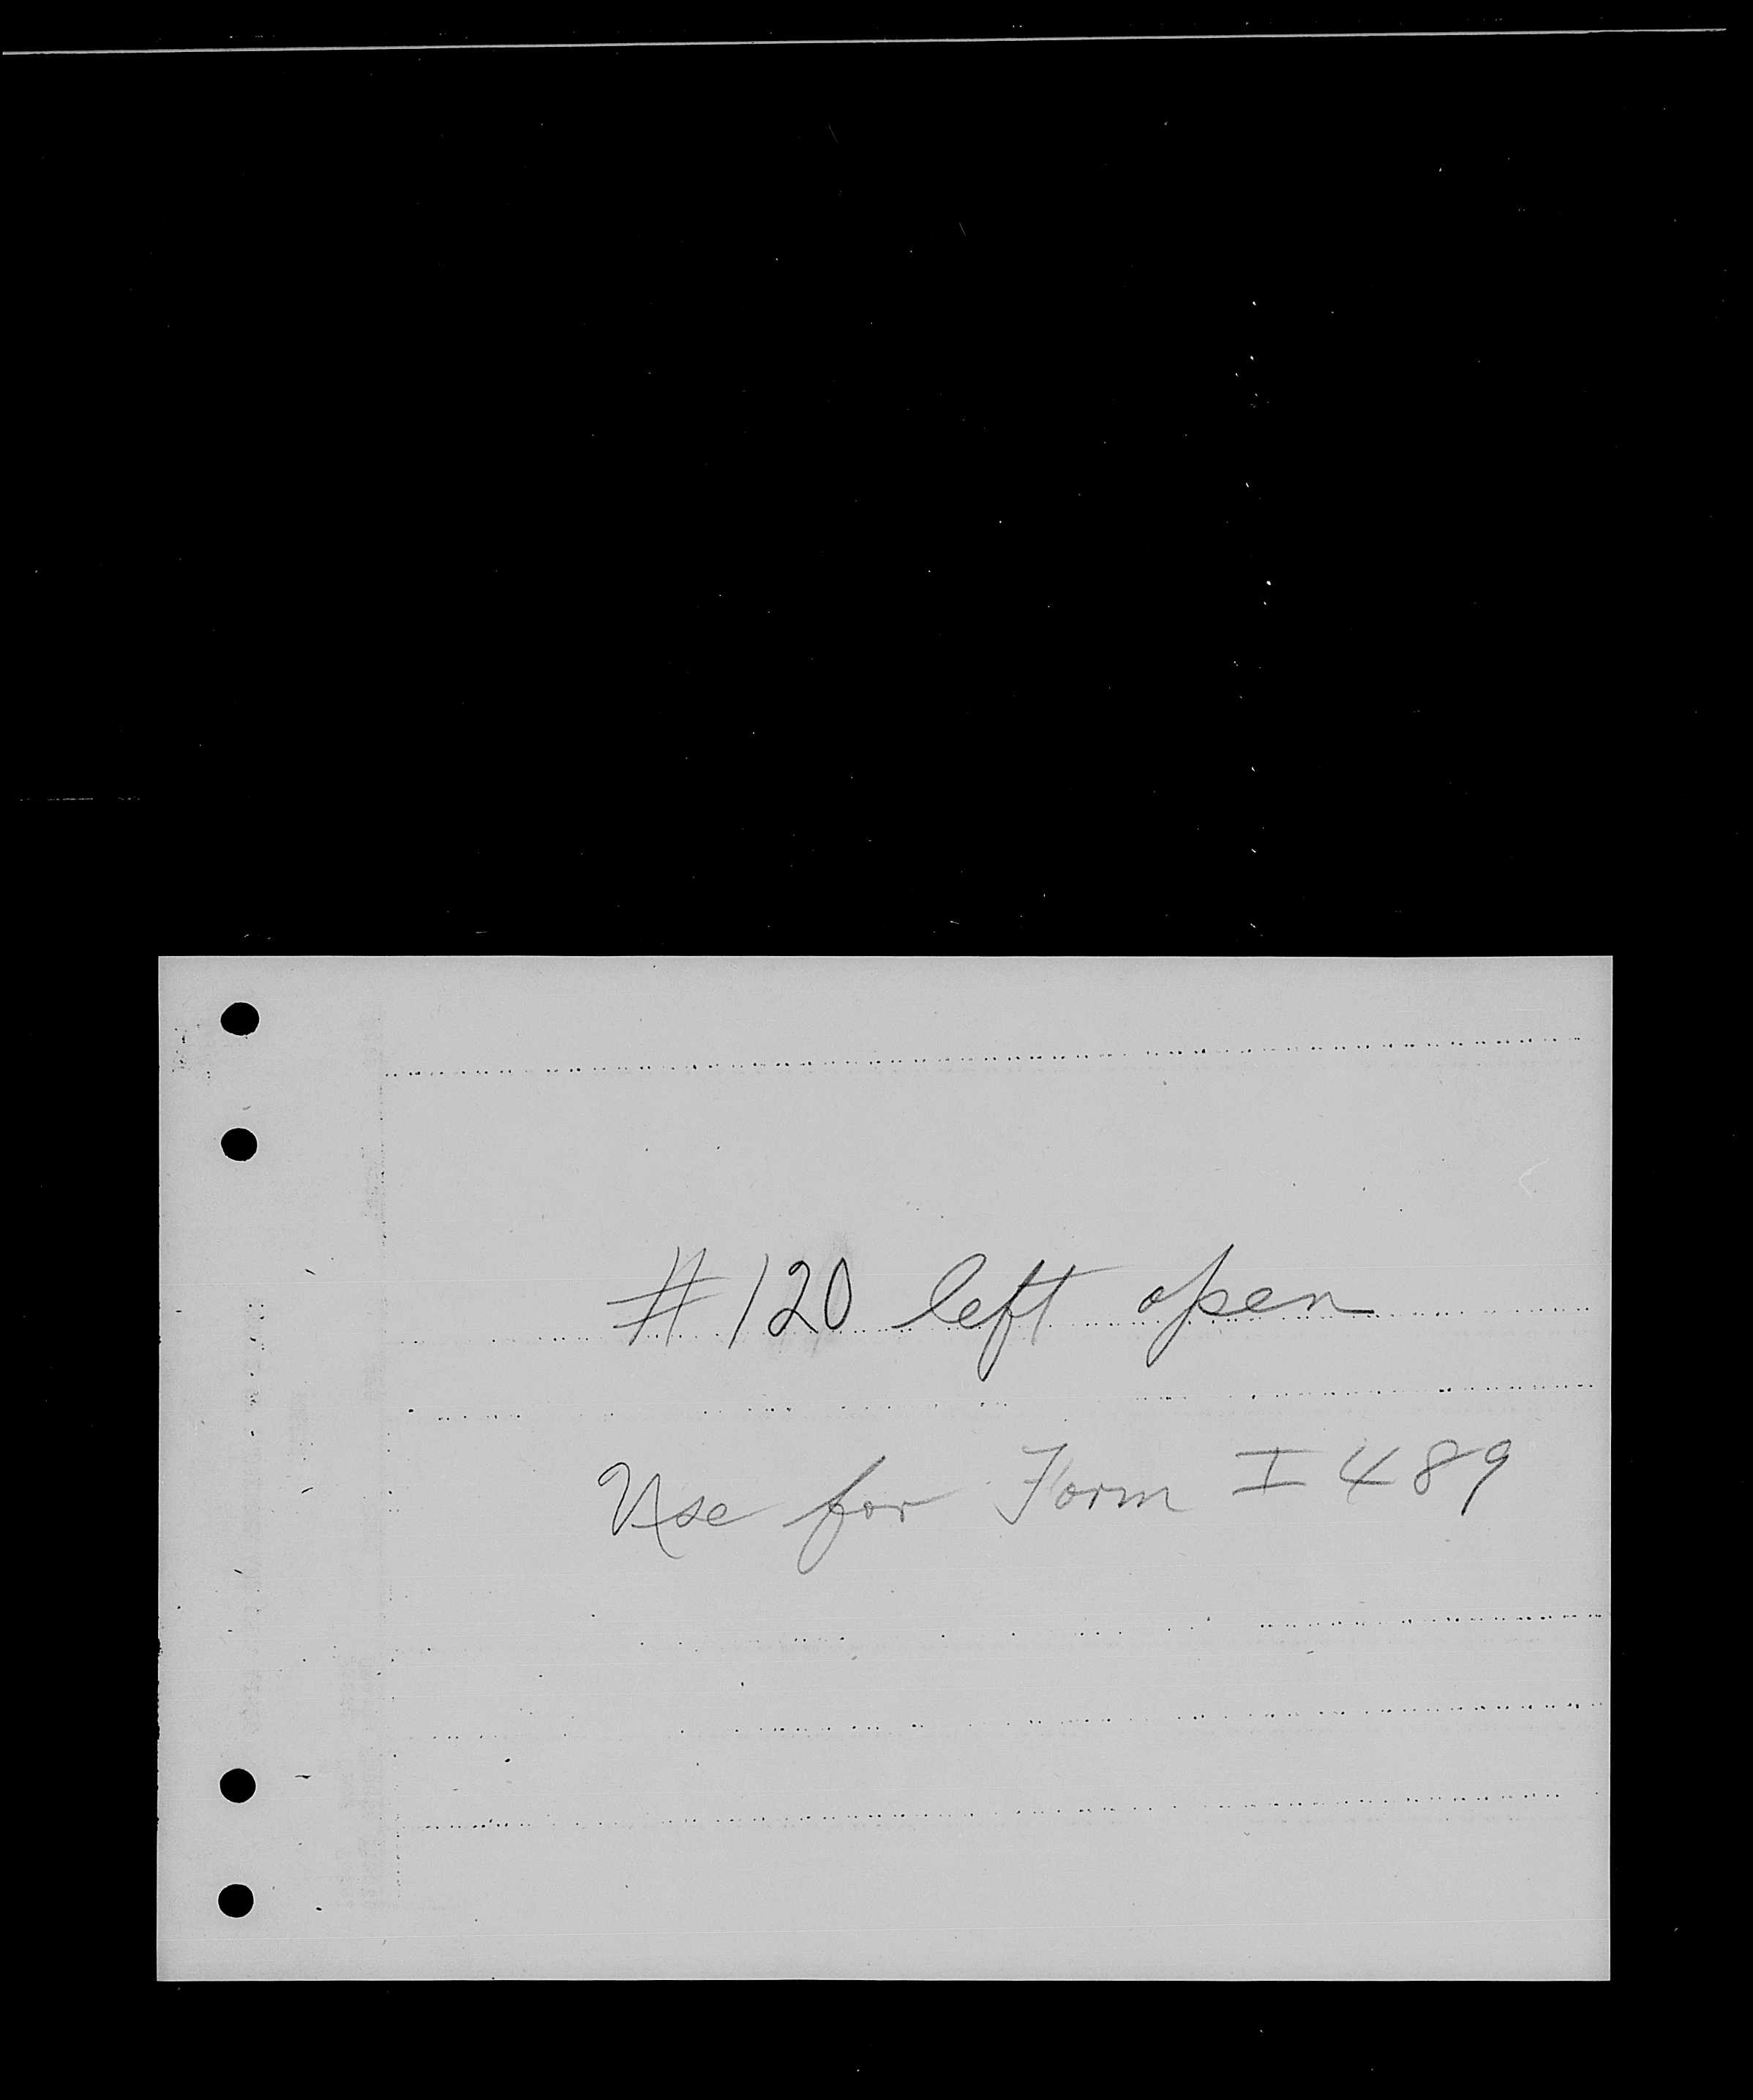 # 120 left open
Use for Form I 489